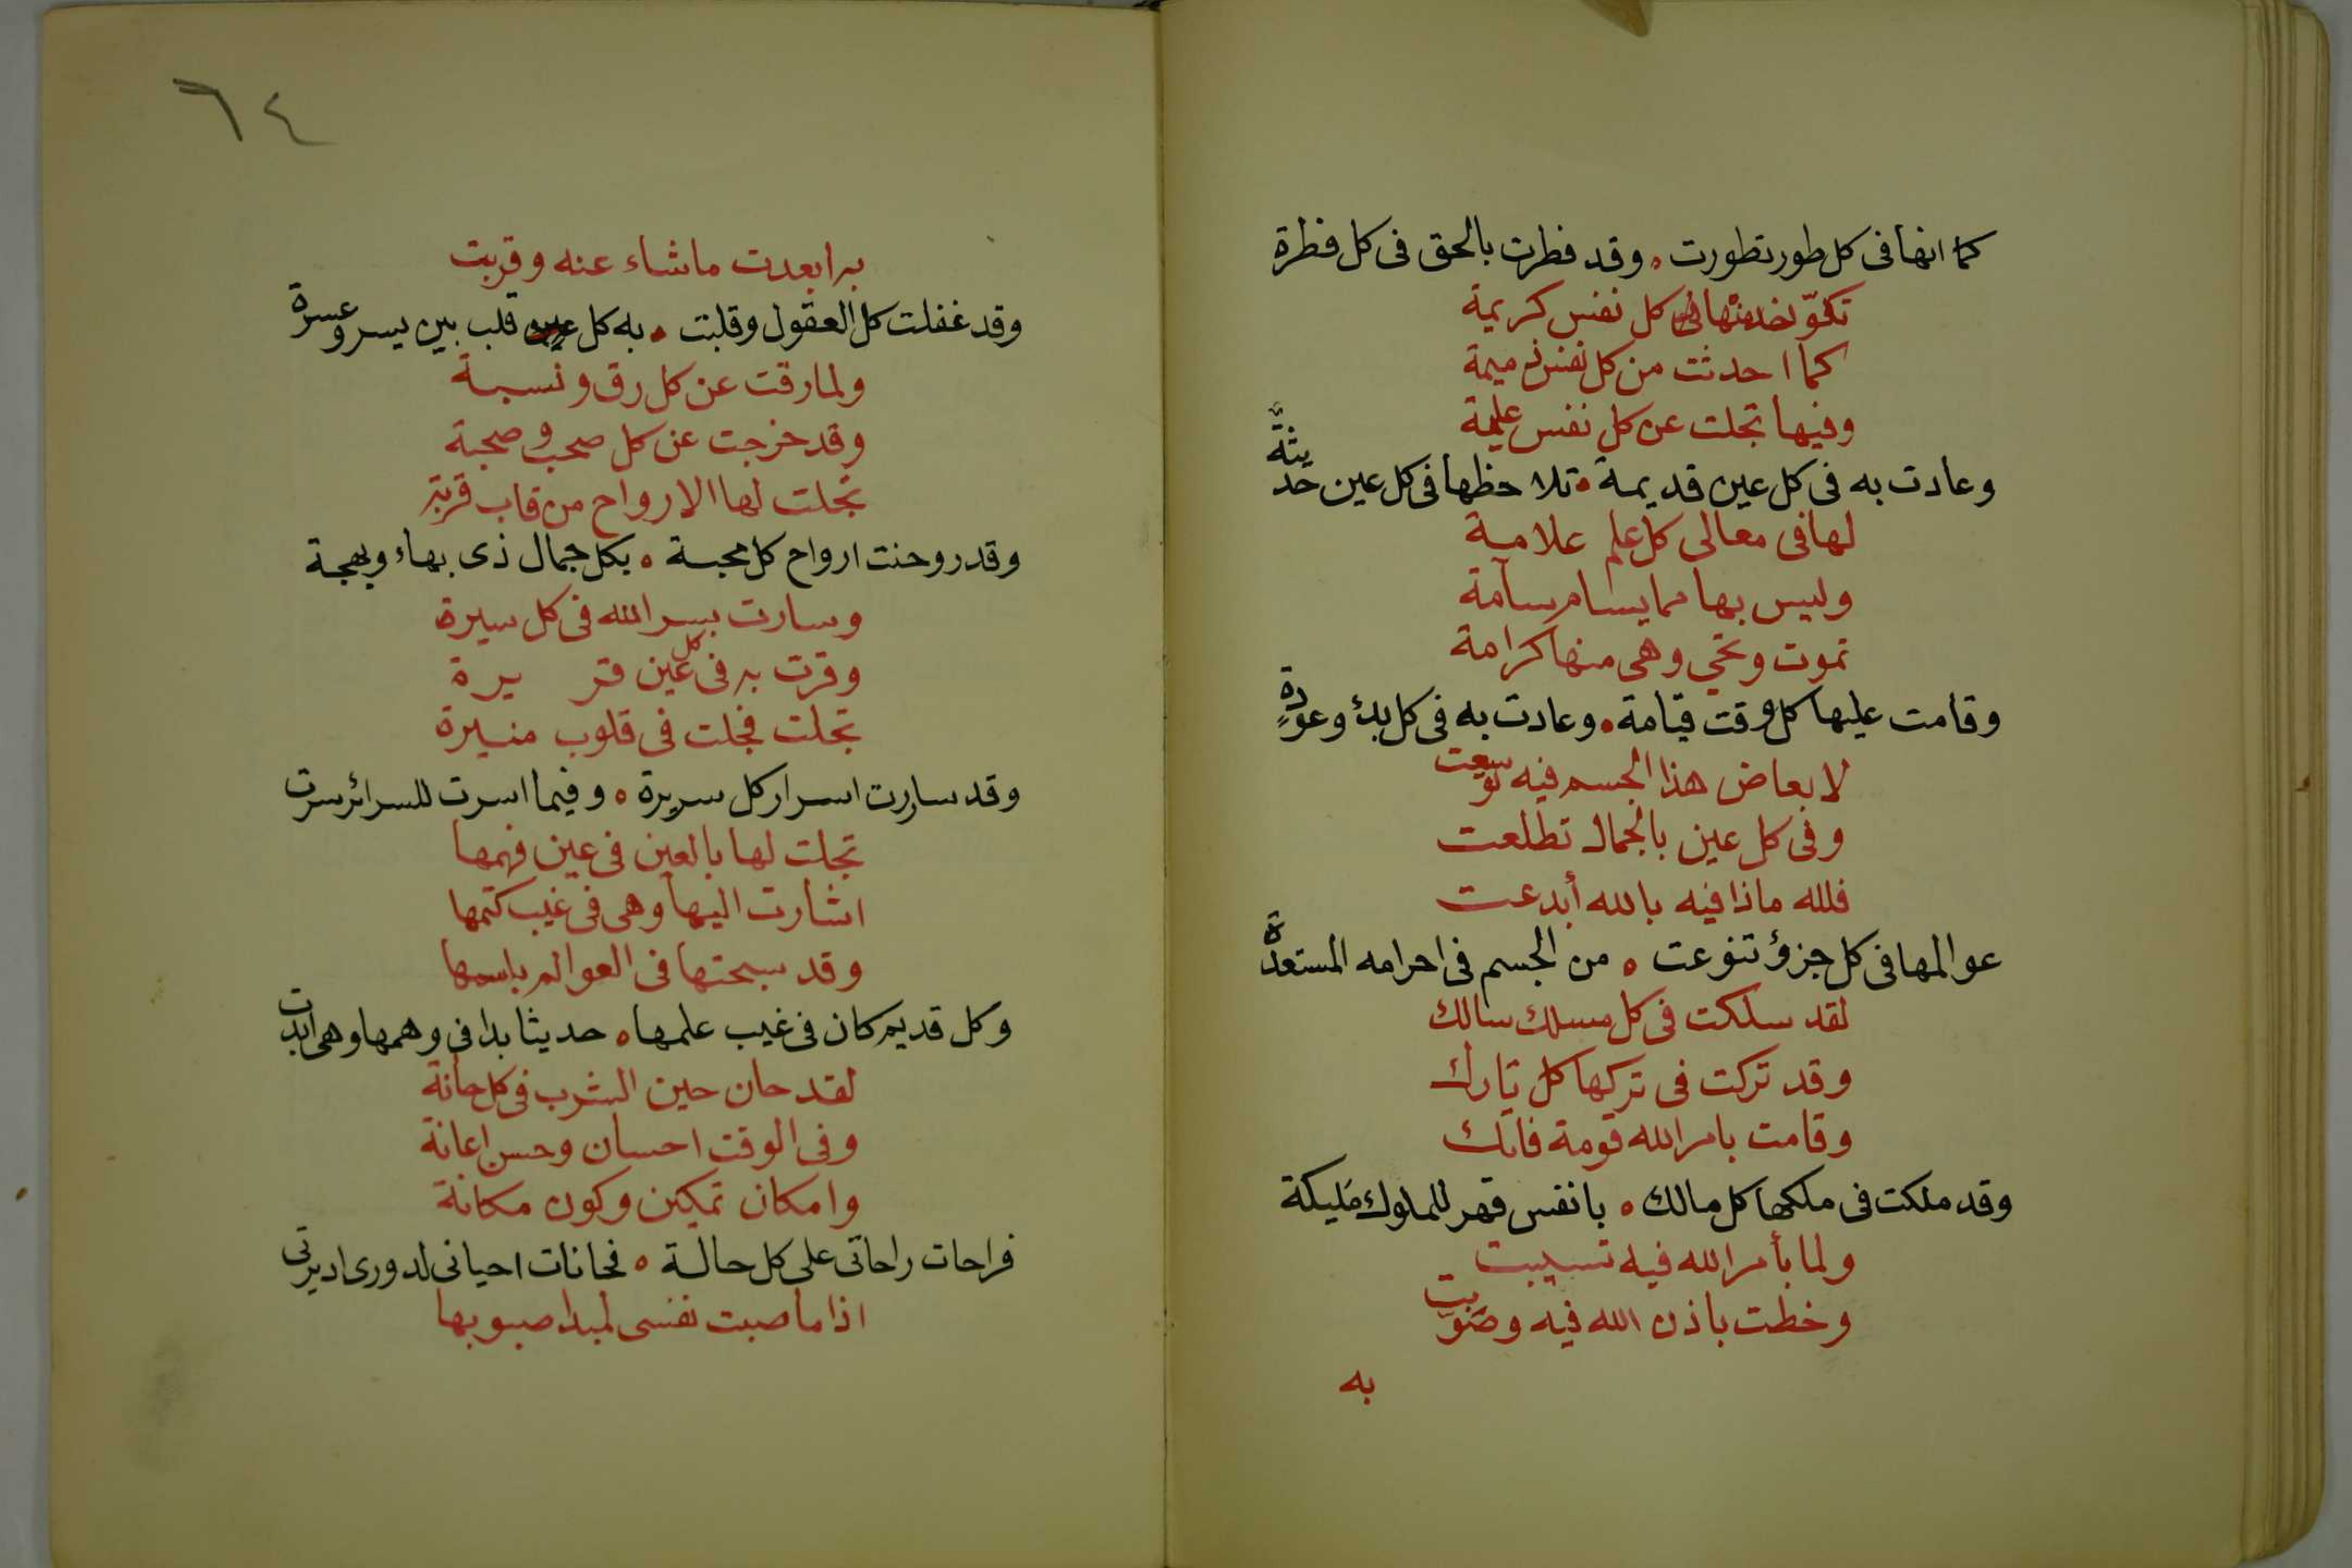 كما انها فى كل طور تطورت ه وقد فطرت بالحق فى كل فطرة
كل نفس كريمة
كما احدثت من كل نفس ذميمة
وفيها تجلت عن كل نفس عليمة
وعادت به فى كل عين قديمة ه تلاحظها فى كل عين حديثة
لها فى معالى كل علم علامة
وليس بها مما يسام سآمة
تموت وتحي وهى منها كرامة
وقامت عليها كل وقت قيامة ه وعادت به فى كل بدئ وعودةٍ
لابعاض هذا الجسم فيه توسعت
وفى كل عين بالجمال تطلعت
فلله ماذا فيه بالله أبدعت
عوالمها فى كل جزؤ تنوعت ه من الجسم فى احرامه المستعدَّة
لقد سلكت فى كل مسلك سالك
وقد تركت فى تركها كل تارك
وقامت بامر الله قومة فاتك
وقد ملكت فى ملكها كل مالك ه بانفس قهر للملوك مَليكة
ولما بأمر الله فيه تسببت
وخطت باذن الله فيه وصَوّبت
به
٦٤
به ابعدت ماشاء عنه وقربت
وقد غفلت كل العقول وقلبت ه به كل قلب بين يسر وعسرة
ولما رقت عن كل رق ونسبة
وقد خرجت عن كل صحب وصحبة
تجلت لها الارواح من قاب قربة
وقد روحنت ارواح كل محبة ه بكل جمال ذى بهاء وبهجة
وسارت بسر الله فى كل سيرة
وقرت به فى كل عين قريرة
تجلت فجلت فى قلوب منيرة
وقد ساررت اسرار كل سريرة ه وفيما اسرت للسرائر سرت
تجلت لها بالعين فى عين فهمها
اشارت اليها وهى فى غيب كتمها
وقد سبحتها فى العوالم باسمها
وكل قديم كان فى غيب علمها ه حديثا بدا فى وهمها وهى ابدت
لقد حان حين الشرب فى كل حانة
وفى الوقت احسان وحسن اعانة
وامكان تمكين وكون مكانة
فراحات راحاتى على كل حالة ه فحانات احيانى لدورى اديرتى
اذا ما صبت نفسى لمبدا صبوبها